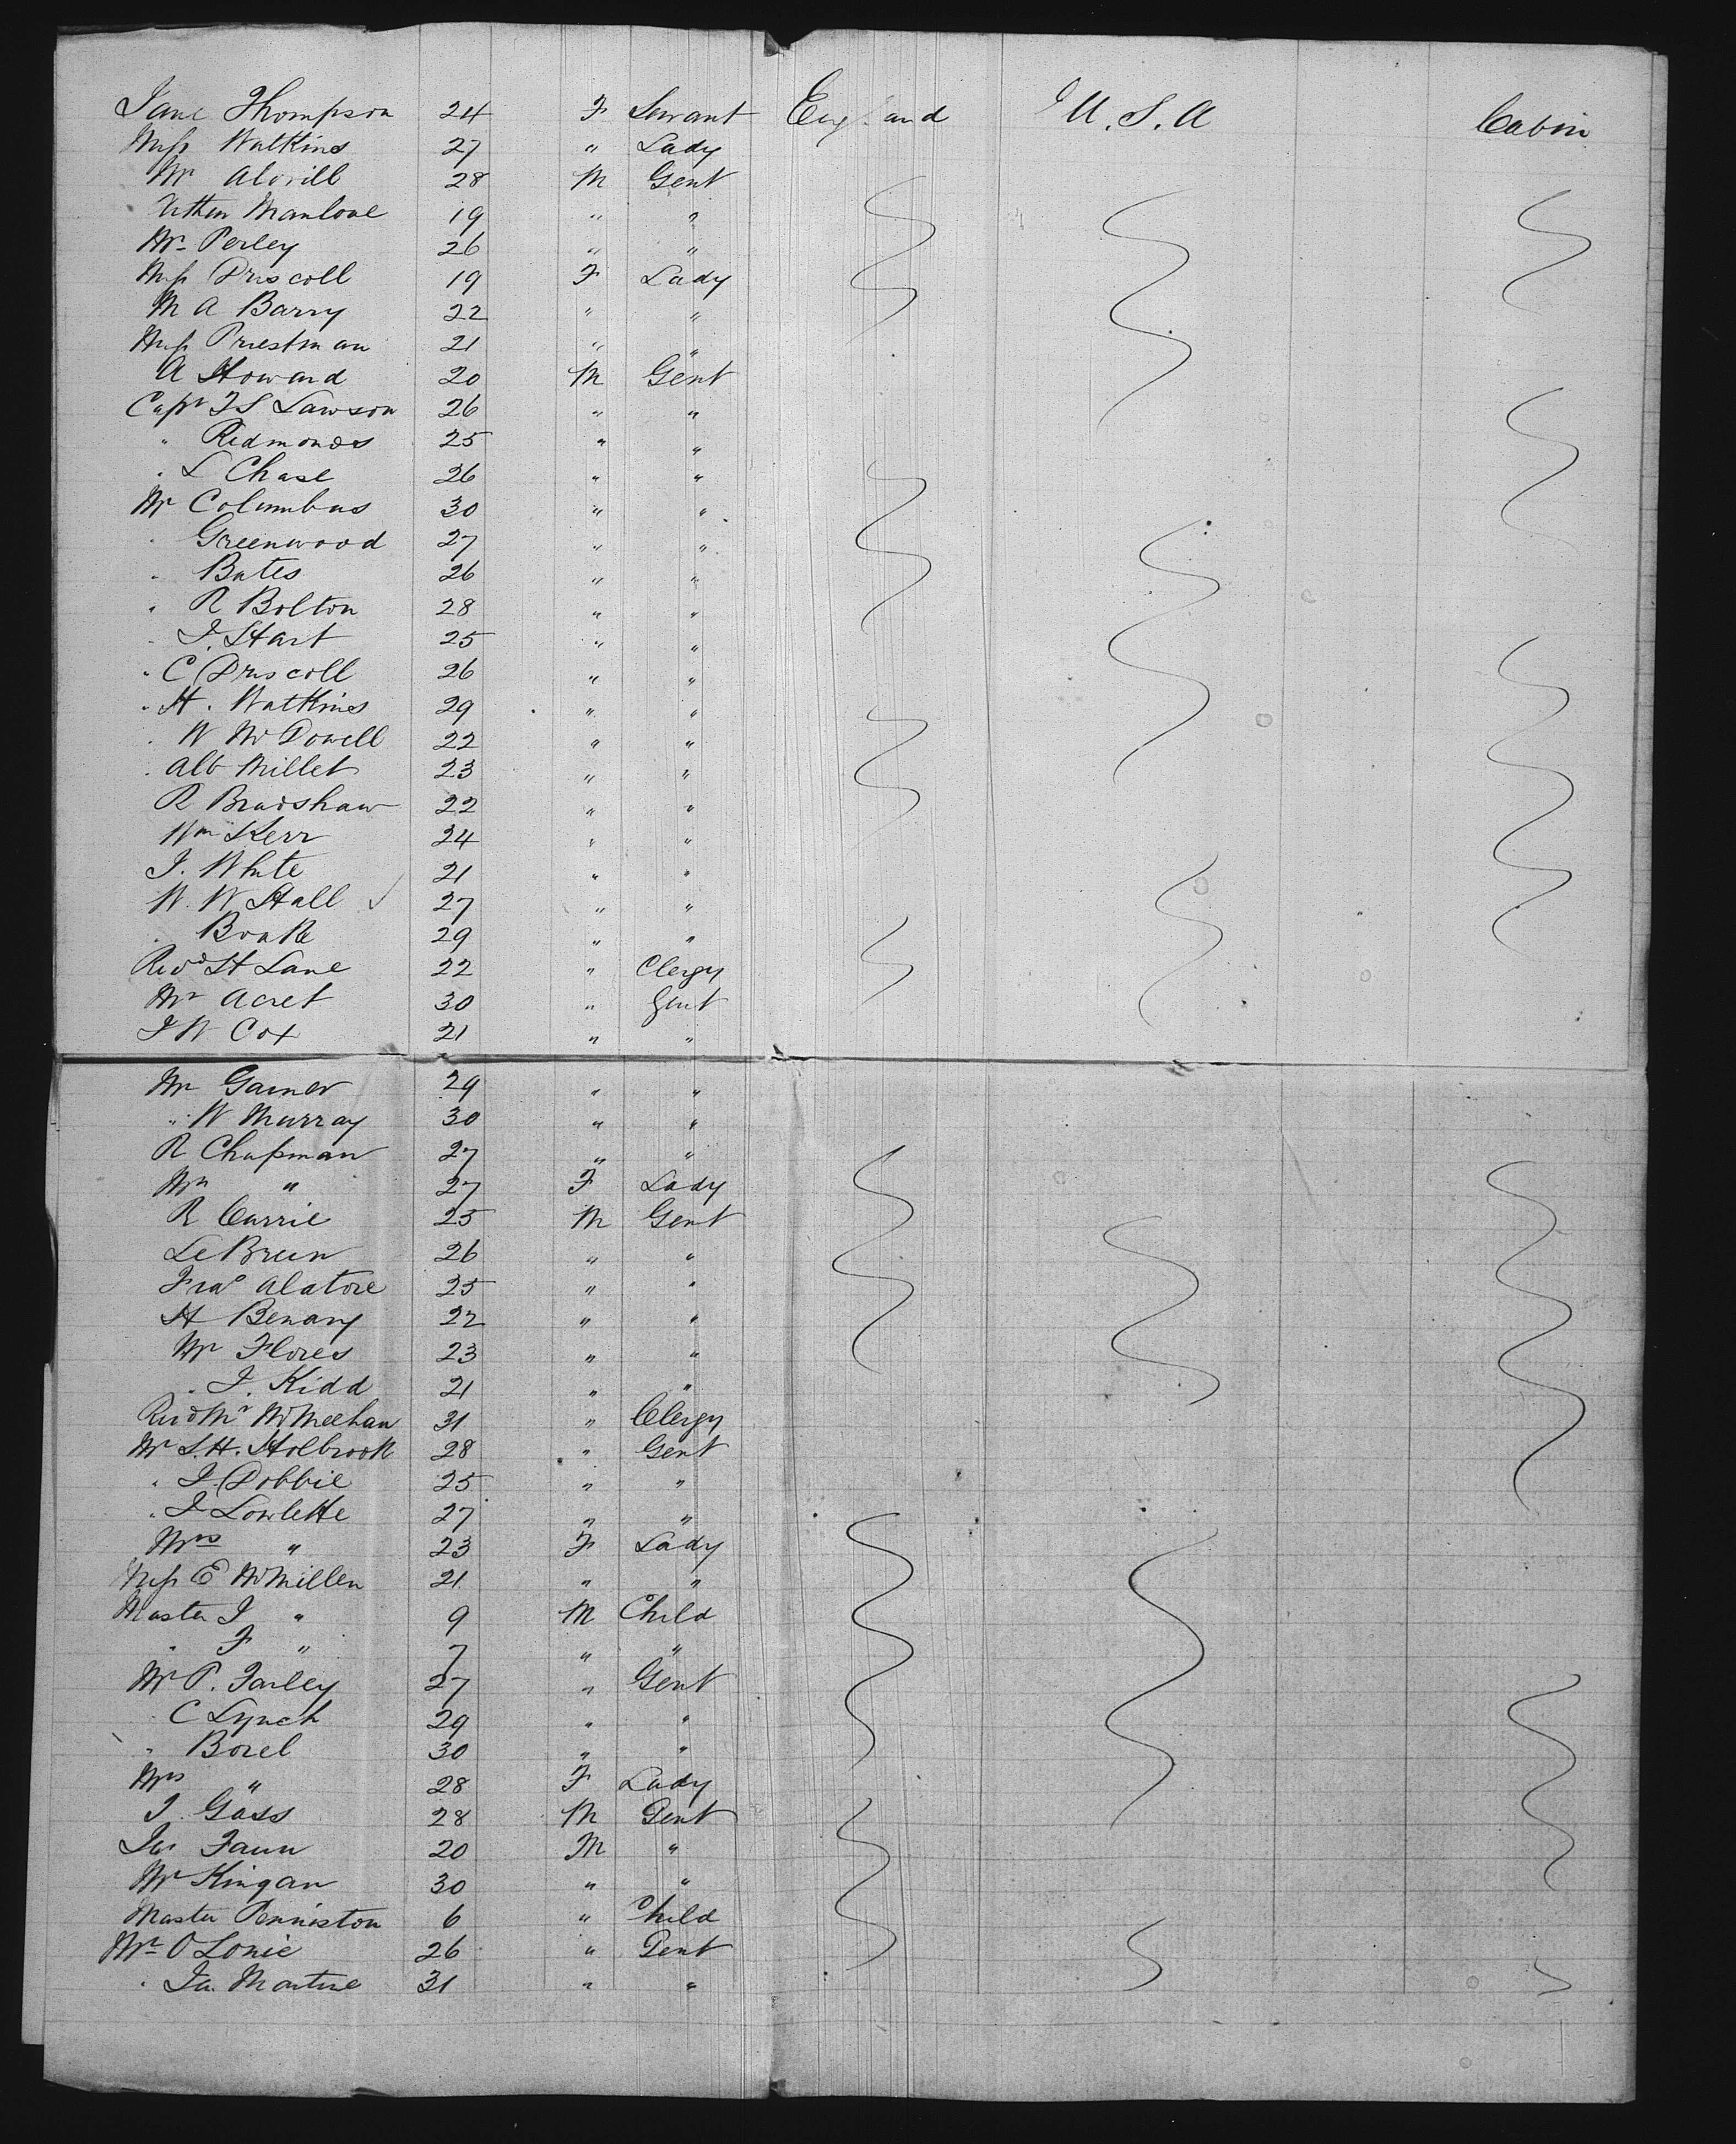 Jane Thompson 24 F Servant England U.S.A Cabin
Miss Watkins 27 " Lady
Mr 28 M Gent
Manlove 19 " "
Mr Perley 26 " "
Miss Driscoll 19 F Lady
M A Barry 22 " "
Miss Priestman 21 " "
A Howard 20 M Gent
Capt J S Lawson 26 " "
" Redmonds 25 " "
" L Chase 26 " "
Mr Columbus 30 " "
" Greenwood 27 " "
" Bates 26 " "
" R Bolton 28 " "
" J. Hart 25 " "
" C Driscoll 26 " "
" H. Watkins 29 " "
" W McDowell 22 " "
" Alb Millet 23 " "
R Bradshaw 22 " "
Wm Kerr 24 " "
J. White 21 " "
W. W Hall 27 " "
" 29 " "
Revd H Lane 22 " Clergy
Mr Acret 30 " Gent
J W Cox 21 " "
Mr Garner 29 " "
" W Murray 30 " "
R Chapman 27 " "
Mrs " 27 F Lady
R Currie 25 M Gent
LeBrun 26 " "
Alatore 25 " "
H Benary 22 " "
Mr Flores 23 " "
" J. Kidd 21 " "
Revd Mr McMeehan 31 " Clergy
Mr S.H. Holbrook 28 " Gent
" J. Dobbie 25 " "
" J Lowlette 27 " "
Mrs " 23 F Lady
Miss E McMillen 21 " "
Master J " 9 M Child
" F " 7 " "
Mr P. Farley 27 " Gent
" C Lynch 29 " "
" Borel 30 " "
Mrs " 28 F Lady
J. Gass 28 M Gent
Jas Faun 20 M "
Mr Kingan 30 " "
Master Penniston 6 " Child
Mr O Lonie 26 " Gent
" Ja. Martine 31 " "